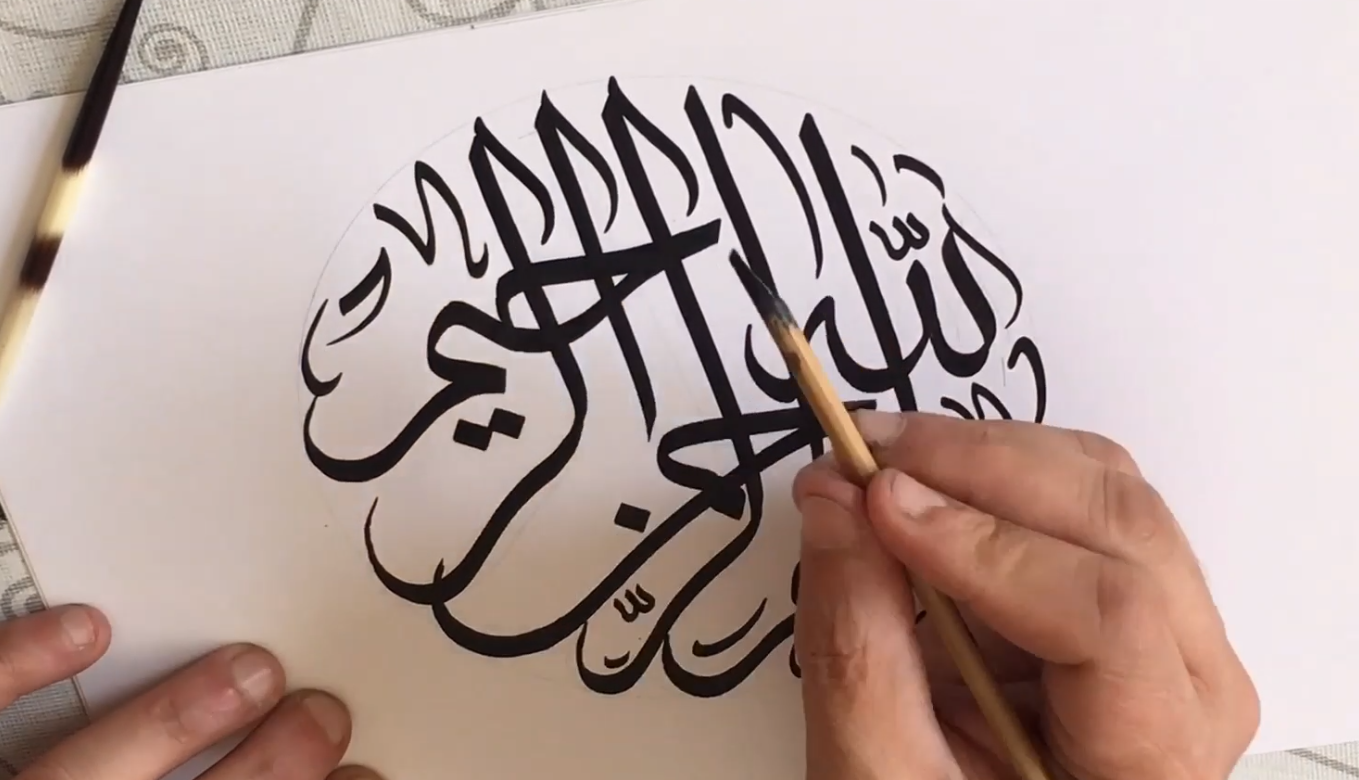 الله
الرحمن
الرحيم